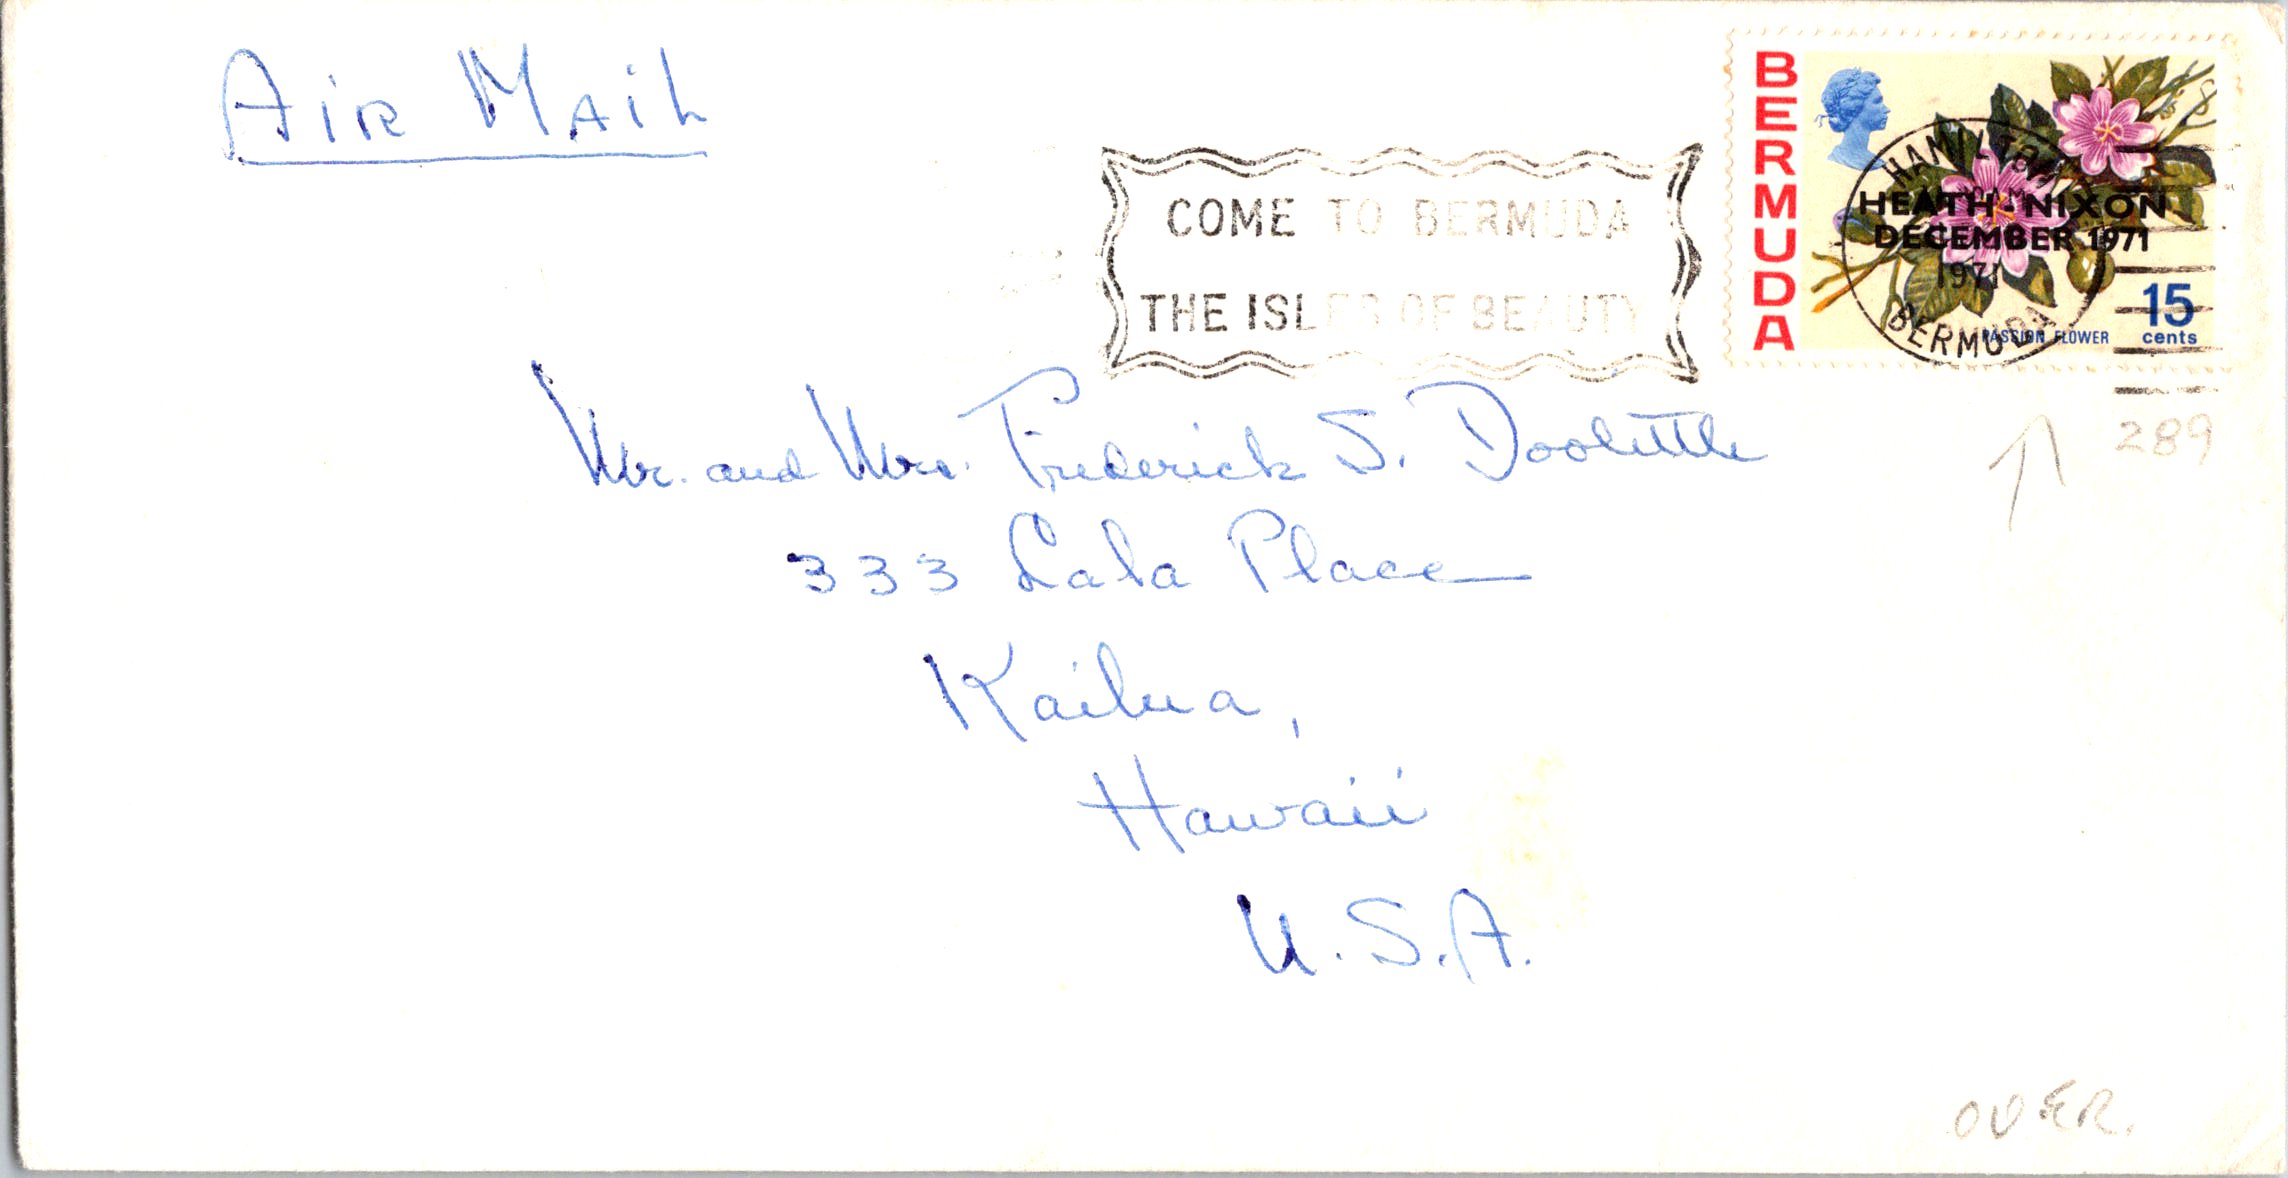 AIR MAIL
COME TO BERMUDA
THE ISLES OF BEAUTY
BERMUDA
HAMILTON
HEATH-NIXON
DECEMBER 1971
1971
BERMUDA
PASSION FLOWER
15
cents
289
Mr. and Mrs. Frederick S. Doolittle
333 Lala Place
Kailua,
Hawaii
U.S.A.
OVER.